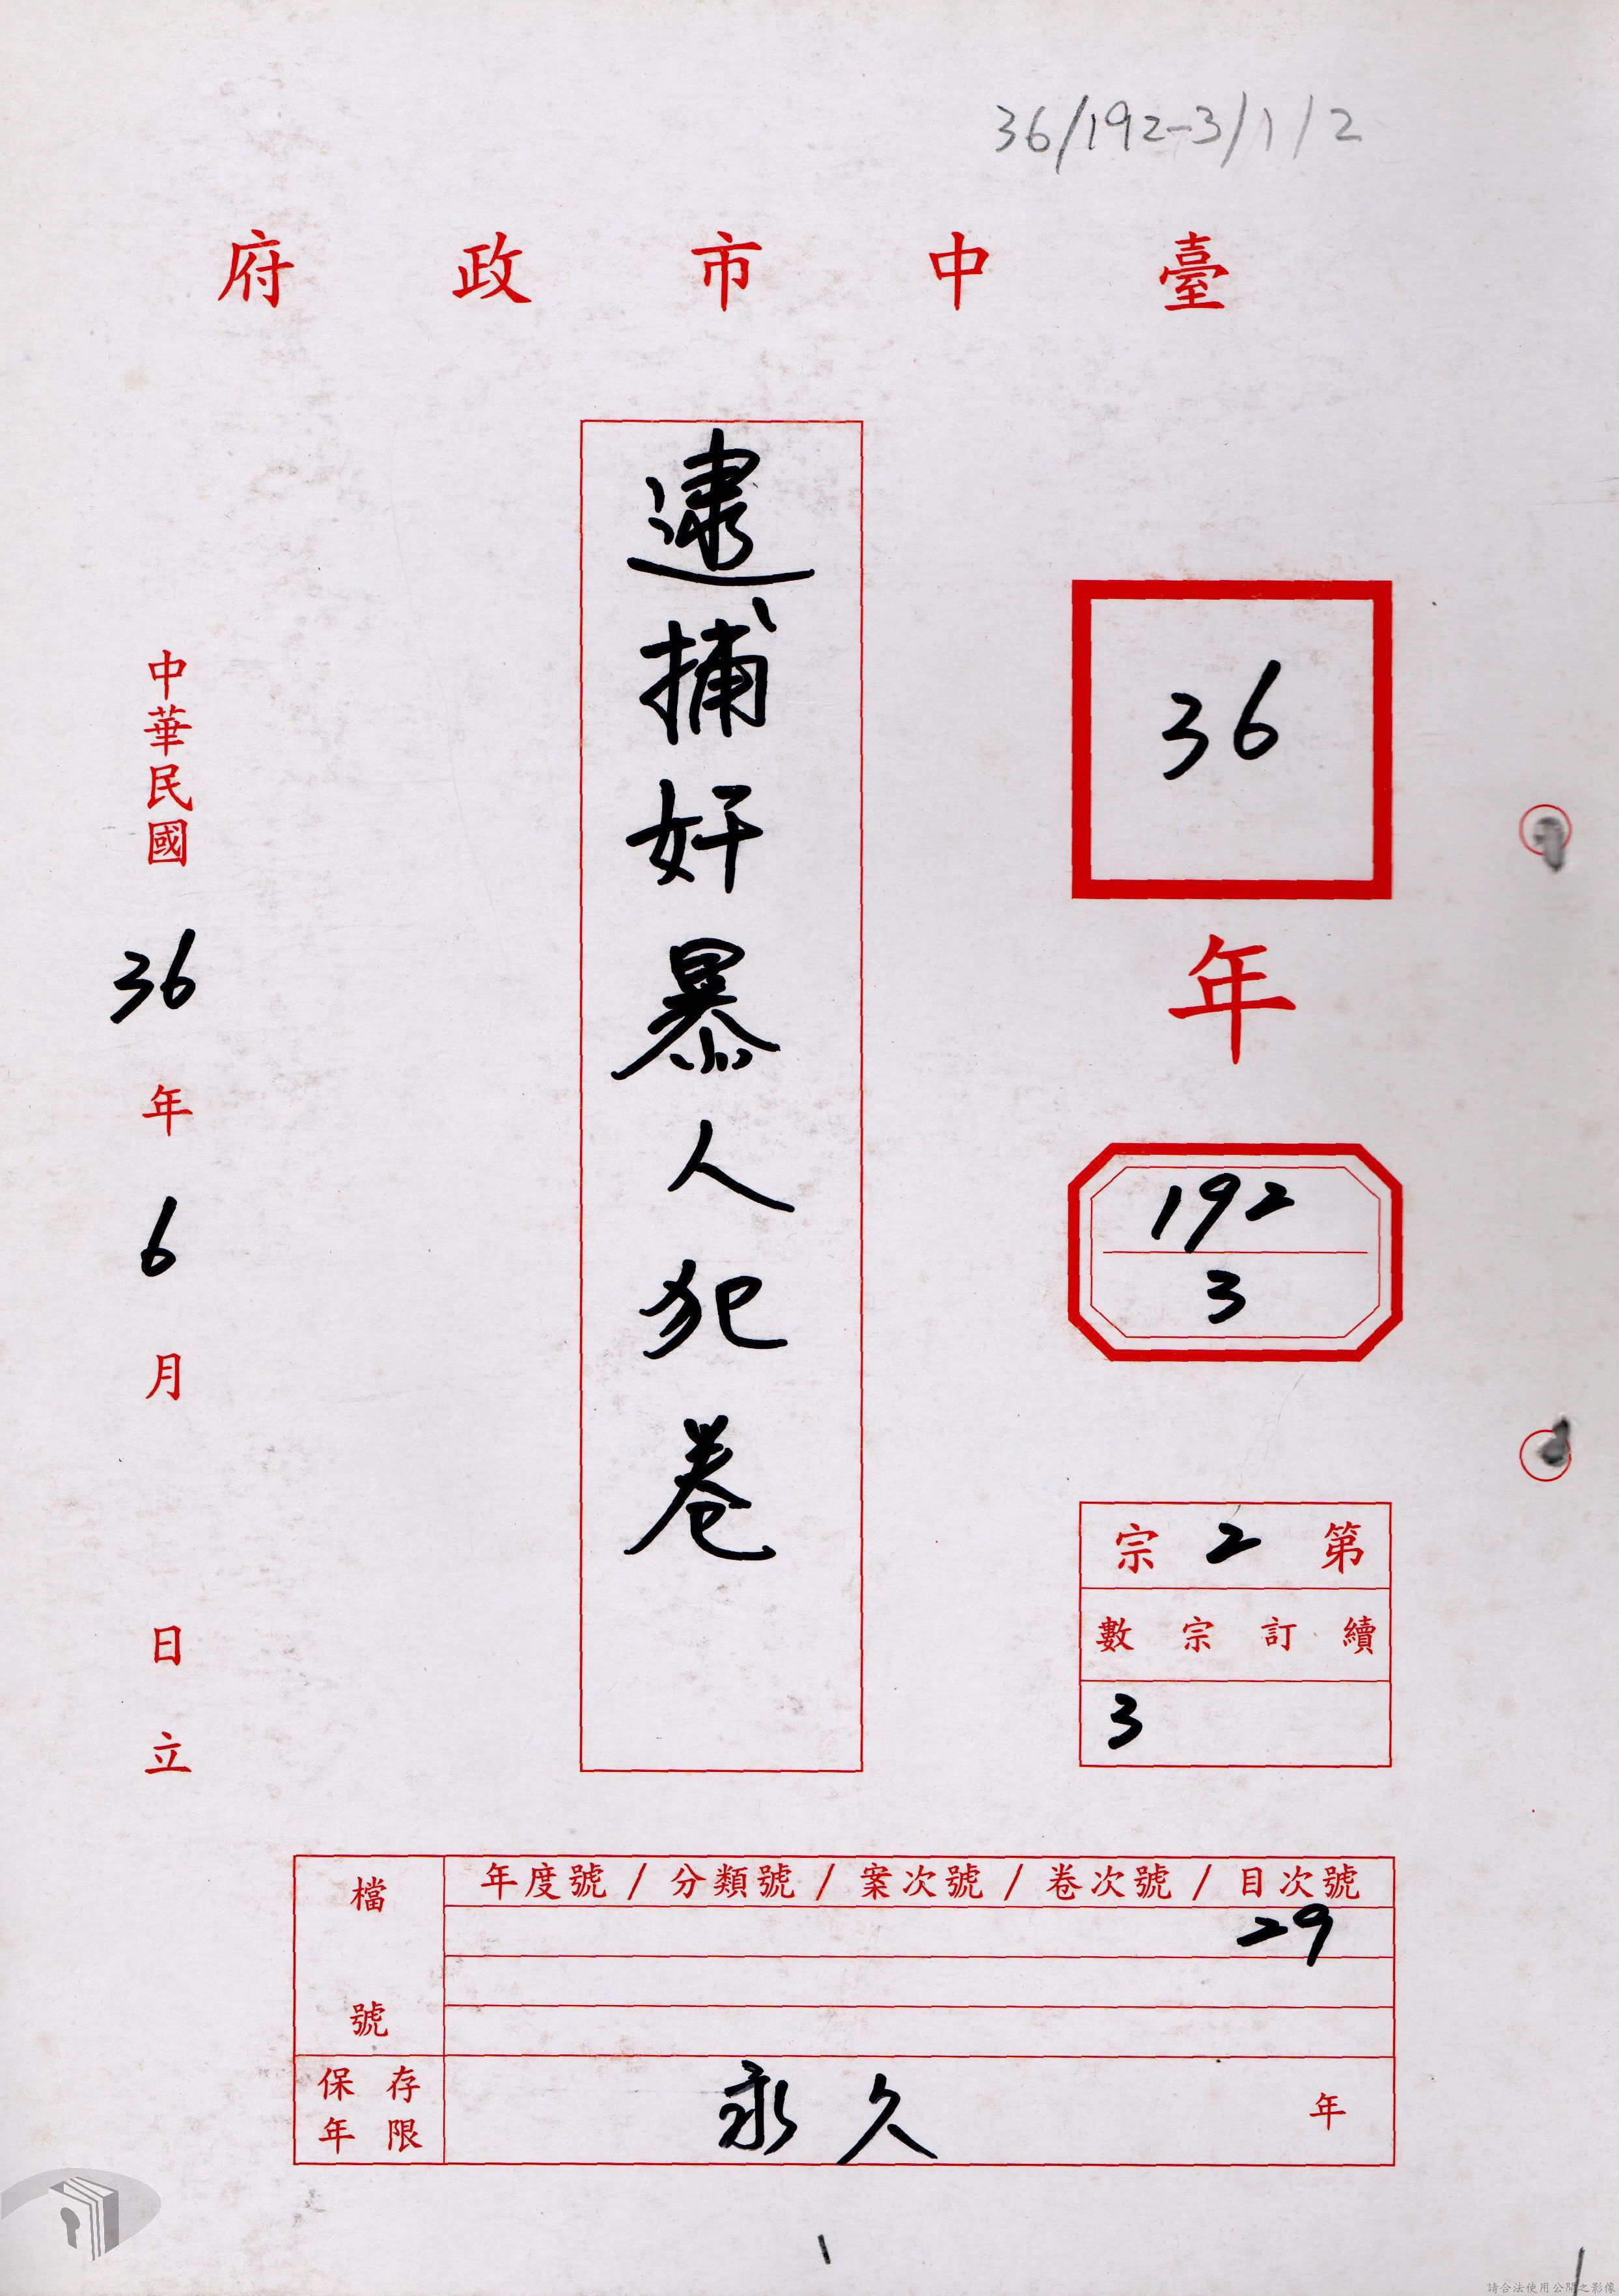 36/192-3/1/2
臺中市政府
36
年
192
3
第2宗
續訂宗數
3
逮捕奸暴人犯卷
中華民國36年6月日立
檔號
年度號/分類號/案次號/卷次號/目次號
29
保存年限
永久年
1
請合法使用公開之影像